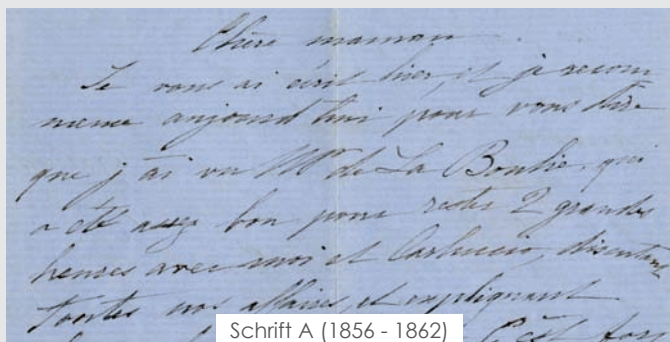 Chère maman
Je vous ai écrit hier, et je recom
mence aujourd'hui pour vous dire
que j'ai vu Mr de La Boulie, qui
a été assez bon pour rester 2 grandes
heures avec moi et Carluccio, discutant
toutes nos affaires, et expliquant
C'est
Schrift A (1856 - 1862)